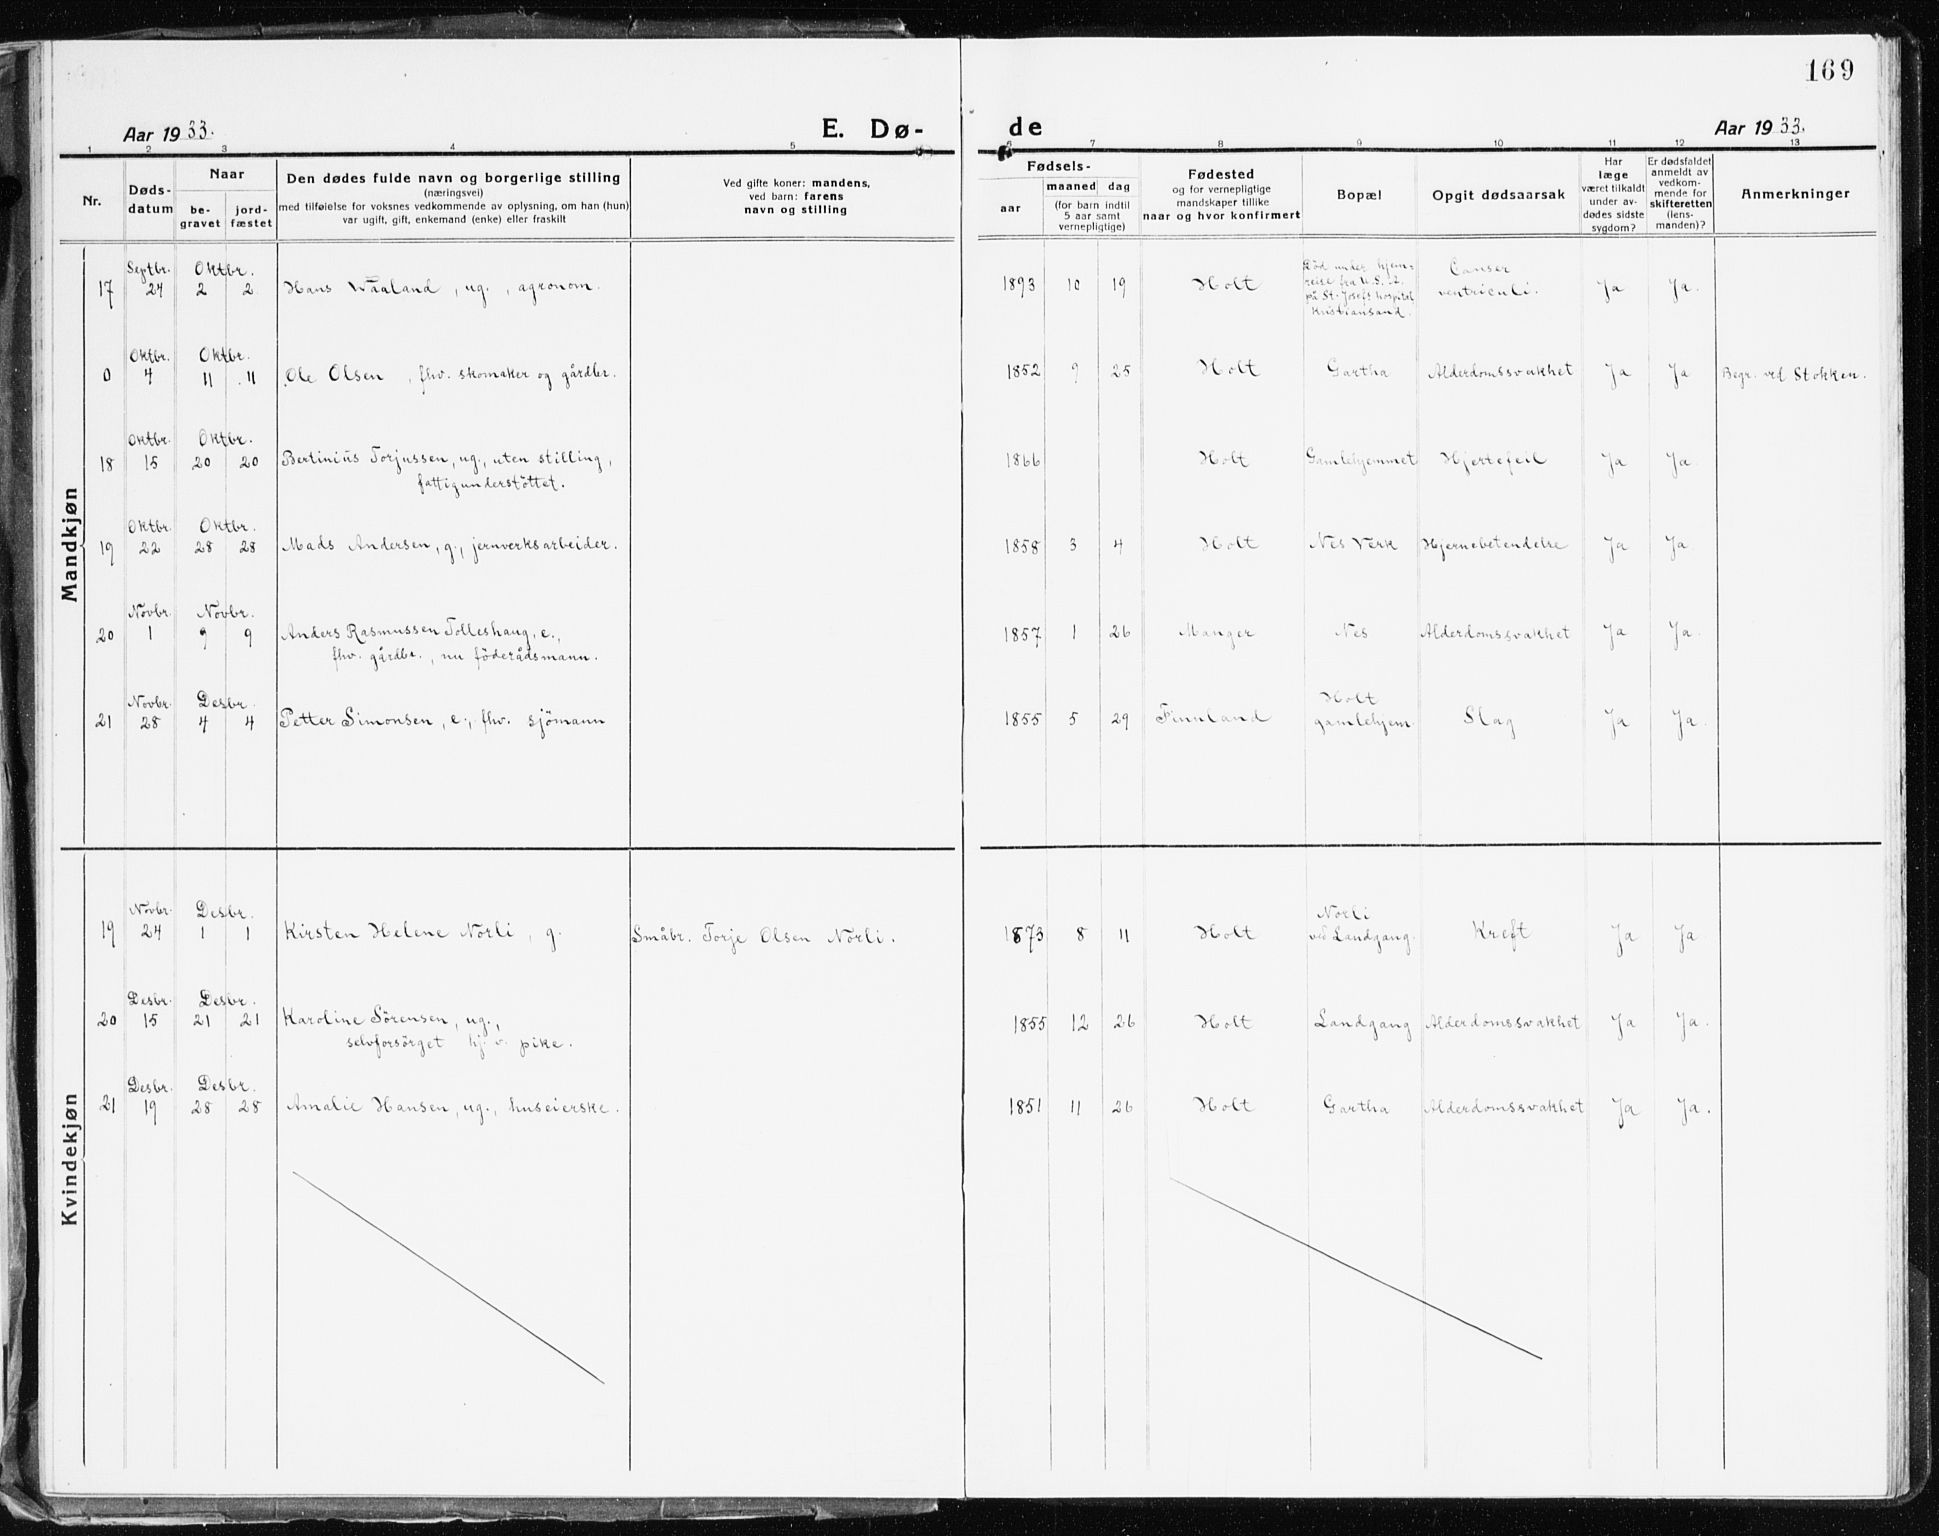 169
Aar 1933.
E. Dø-
de
Aar 1933.
1 2 3 4 5 6 7 8 9 10 11 12 13
Nr.
Døds-
datum
Naar
be-
gravet
jord-
fæstet
Den dødes fulde navn og borgerlige stilling
(næringsvei)
med tilføielse for voksnes vedkommende av oplysning, om han (hun)
var ugift, gift, enkemand (enke) eller fraskilt
Ved gifte koner: mandens,
ved barn: farens
navn og stilling
Fødsels-
aar
maaned dag
(for barn indtil
5 aar samt
vernepligtige)
Fødested
og for vernepligtige
mandskaper tillike
naar og hvor konfirmert
Bopæl
Opgit dødsaarsak
Har
læge
været tilkaldt
under av-
dødes sidste
sygdom?
Er dødsfaldet
anmeldt av
vedkom-
mende for
skifteretten
(lens-
manden)?
Anmerkninger
Mandkjøn
Septbr. Oktbr.
17 24 2 2 Hans Waaland, ug., agronom. 1893 10 19 Holt
Död under hjem-
reise fra U.S.A.
på St. Josefs hospital
Kristiansand.
Canser
ventriculi.
Ja Ja.
Oktbr. Oktbr.
0 4 11 11 Ole Olsen, fhv. skomaker og gårdbr. 1852 9 25 Holt Gartha Alderdomssvakhet Ja Ja Begr. ved Stokken.
Oktbr. Oktbr.
18 15 20 20 Bertinius Torjussen, ug., uten stilling, 1866 Holt Gamlehjemmet Hjertefeil Ja Ja.
fattigunderstöttet.
Oktbr. Oktbr.
19 22 28 28 Mads Andersen, g., jernverksarbeider. 1858 3 4 Holt Nes Verk Hjernebetendelse Ja Ja.
Novbr. Novbr.
20 1 9 9 Anders Rasmussen Tolleshaug, e., 1857 1 26 Manger Nes Alderdomssvakhet Ja Ja.
fhv. gårdbr., nu föderådsmann.
Novbr. Desbr.
21 28 4 4 Petter Simonsen, e., fhv. sjömann 1855 5 29 Finnland
Holt
gamlehjem
Slag Ja Ja.
Kvindekjøn
Novbr. Desbr.
19 24 1 1 Kirsten Helene Norli, g. Småbr. Torje Olsen Norli. 1873 8 11 Holt
Norli
ved Landgang.
Kreft Ja Ja.
Desbr. Desbr.
20 15 21 21 Karoline Sörensen, ug., 1855 12 26 Holt Landgang Alderdomssvakhet Ja Ja.
selvforsörget hj. v. pike.
Desbr. Desbr.
21 19 28 28 Amalie Hansen, ug., huseierske. 1851 11 26 Holt Gartha Alderdomssvakhet Ja Ja.